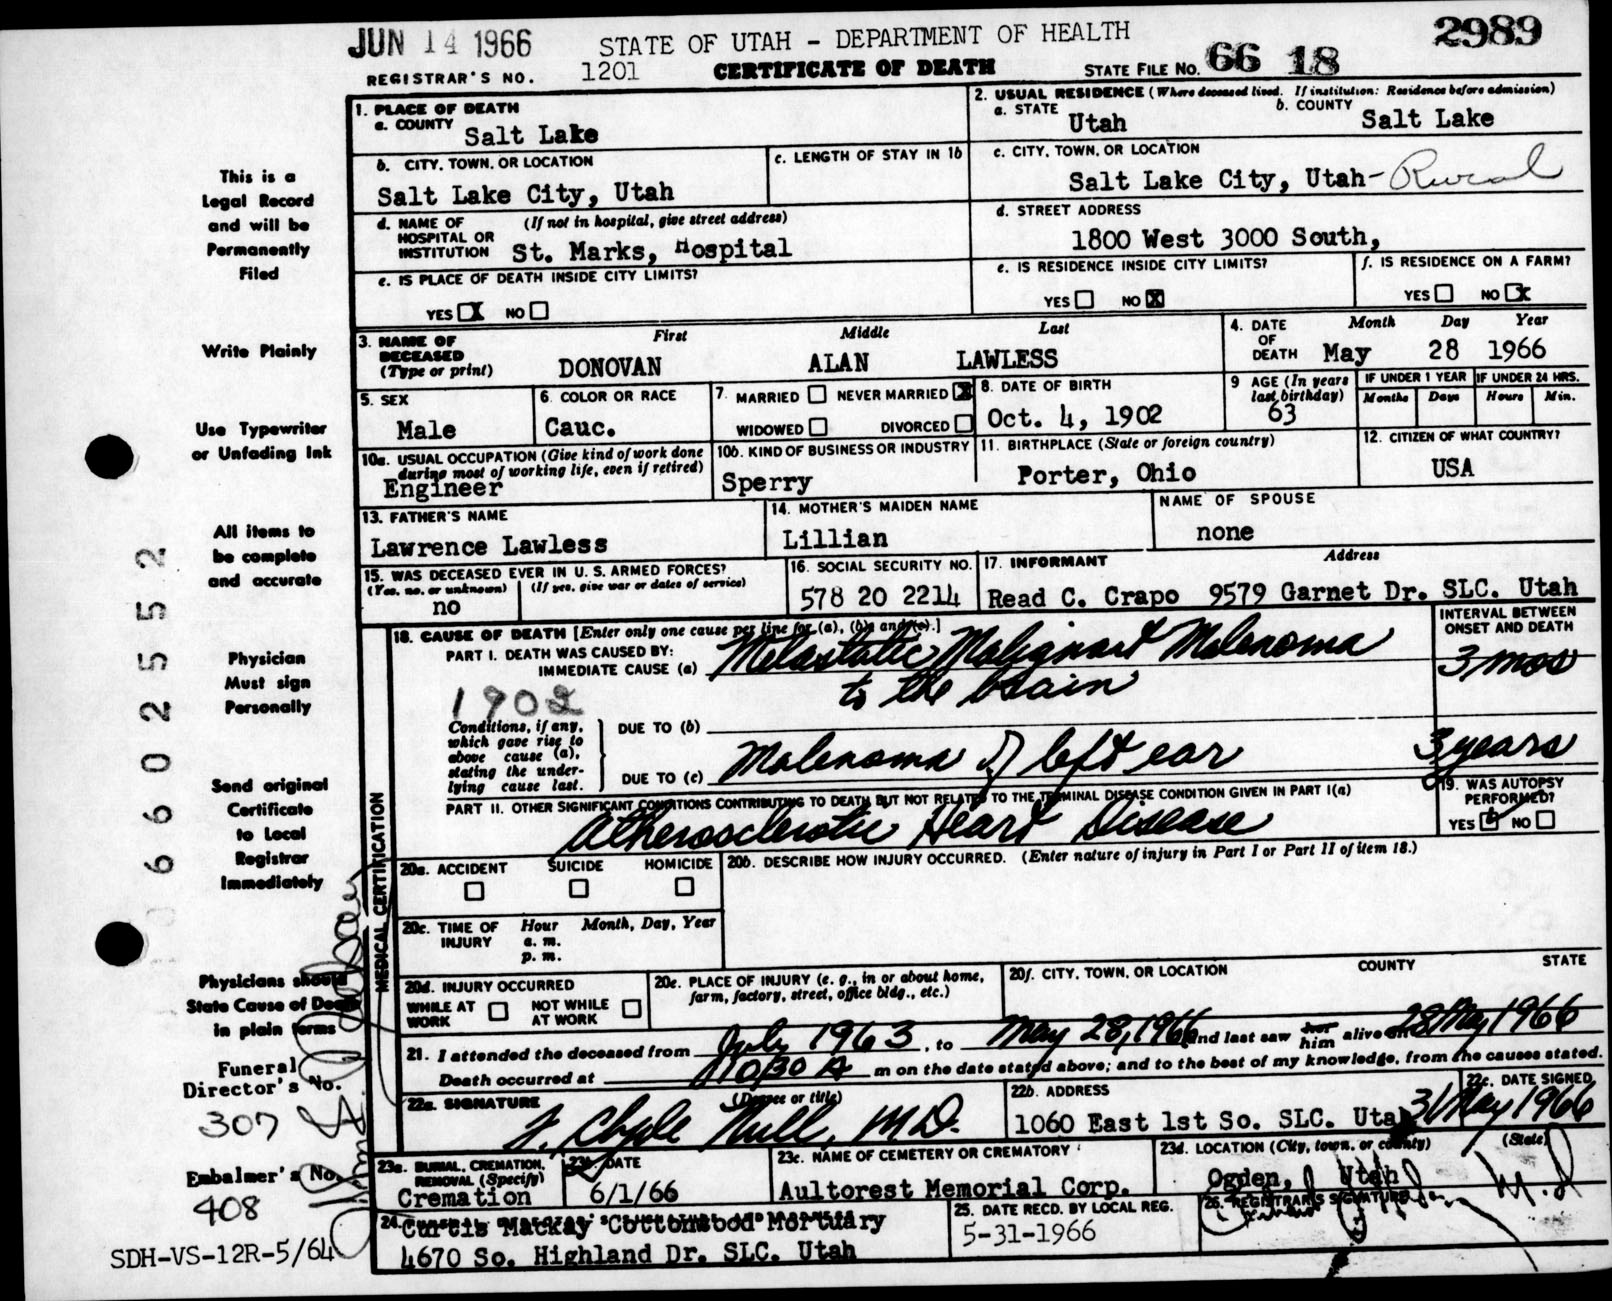 JUN 14 1966 STATE OF UTAH - DEPARTMENT OF HEALTH 2989
REGISTRAR'S NO. 1201 CERTIFICATE OF DEATH STATE FILE NO. 66 18
This is a
Legal Record
and will be
Permanently
Filed
Write Plainly
Use Typewriter
or Unfading Ink
All items to
be complete
and accurate
Physician
Must sign
Personally
Send original
Certificate
to Local
Registrar
Immediately
Physicians should
State Cause of Death
in plain terms
Funeral
Director's No.
307
Embalmer's No.
408
SDH-VS-12R-5/64
6602552
1. PLACE OF DEATH
a. COUNTY Salt Lake
2. USUAL RESIDENCE (Where deceased lived. If institution: Residence before admission)
a. STATE Utah b. COUNTY Salt Lake
b. CITY, TOWN, OR LOCATION
Salt Lake City, Utah
c. LENGTH OF STAY IN 1b
c. CITY, TOWN, OR LOCATION
Salt Lake City, Utah- Rural
d. NAME OF HOSPITAL OR INSTITUTION (If not in hospital, give street address)
St. Marks, Hospital
d. STREET ADDRESS
1800 West 3000 South,
e. IS PLACE OF DEATH INSIDE CITY LIMITS?
YES X NO
e. IS RESIDENCE INSIDE CITY LIMITS?
YES NO X
f. IS RESIDENCE ON A FARM?
YES NO X
3. NAME OF DECEASED (Type or print) First Middle Last
DONOVAN ALAN LAWLESS
4. DATE OF DEATH Month Day Year
May 28 1966
5. SEX
Male
6. COLOR OR RACE
Cauc.
7. MARRIED NEVER MARRIED X
WIDOWED DIVORCED
8. DATE OF BIRTH
Oct. 4, 1902
9 AGE (In years last birthday)
63
IF UNDER 1 YEAR Months Days
IF UNDER 24 HRS. Hours Min.
10a. USUAL OCCUPATION (Give kind of work done during most of working life, even if retired)
Engineer
10b. KIND OF BUSINESS OR INDUSTRY
Sperry
11. BIRTHPLACE (State or foreign country)
Porter, Ohio
12. CITIZEN OF WHAT COUNTRY?
USA
13. FATHER'S NAME
Lawrence Lawless
14. MOTHER'S MAIDEN NAME
Lillian
NAME OF SPOUSE
none
15. WAS DECEASED EVER IN U. S. ARMED FORCES?
(Yes, no, or unknown) (If yes, give war or dates of service)
no
16. SOCIAL SECURITY NO.
578 20 2214
17. INFORMANT Address
Read C. Crapo 9579 Garnet Dr. SLC. Utah
MEDICAL CERTIFICATION
18. CAUSE OF DEATH [Enter only one cause per line for (a), (b) and (c).]
INTERVAL BETWEEN ONSET AND DEATH
PART I. DEATH WAS CAUSED BY:
IMMEDIATE CAUSE (a) Metastatic Malignant Melenoma 3 mos
to the brain
1902
Conditions, if any, which gave rise to above cause (a), stating the underlying cause last.
DUE TO (b)
DUE TO (c) Melenoma of left ear 3 years
PART II. OTHER SIGNIFICANT CONDITIONS CONTRIBUTING TO DEATH BUT NOT RELATED TO THE TERMINAL DISEASE CONDITION GIVEN IN PART I(a)
Atherosclerotic Heart Disease
19. WAS AUTOPSY PERFORMED?
YES NO
20a. ACCIDENT SUICIDE HOMICIDE
20b. DESCRIBE HOW INJURY OCCURRED. (Enter nature of injury in Part I or Part II of item 18.)
20c. TIME OF INJURY Hour Month, Day, Year
a. m.
p. m.
20d. INJURY OCCURRED
WHILE AT WORK NOT WHILE AT WORK
20e. PLACE OF INJURY (e. g., in or about home, farm, factory, street, office bldg., etc.)
20f. CITY, TOWN, OR LOCATION COUNTY STATE
21. I attended the deceased from July 1963, to May 28, 1966 and last saw her him alive on 28 May 1966
Death occurred at 1030 A m on the date stated above; and to the best of my knowledge, from the causes stated.
22a. SIGNATURE (Degree or title)
F. Clyde Null, M.D.
22b. ADDRESS
1060 East 1st So. SLC. Utah
22c. DATE SIGNED
31 May 1966
23a. BURIAL, CREMATION, REMOVAL (Specify)
Cremation
23b. DATE
6/1/66
23c. NAME OF CEMETERY OR CREMATORY
Aultorest Memorial Corp.
23d. LOCATION (City, town, or county) (State)
Ogden, Utah
24. Curtis Mackay Cottonwood Mortuary
4670 So. Highland Dr. SLC. Utah
25. DATE RECD. BY LOCAL REG.
5-31-1966
26. REGISTRAR'S SIGNATURE